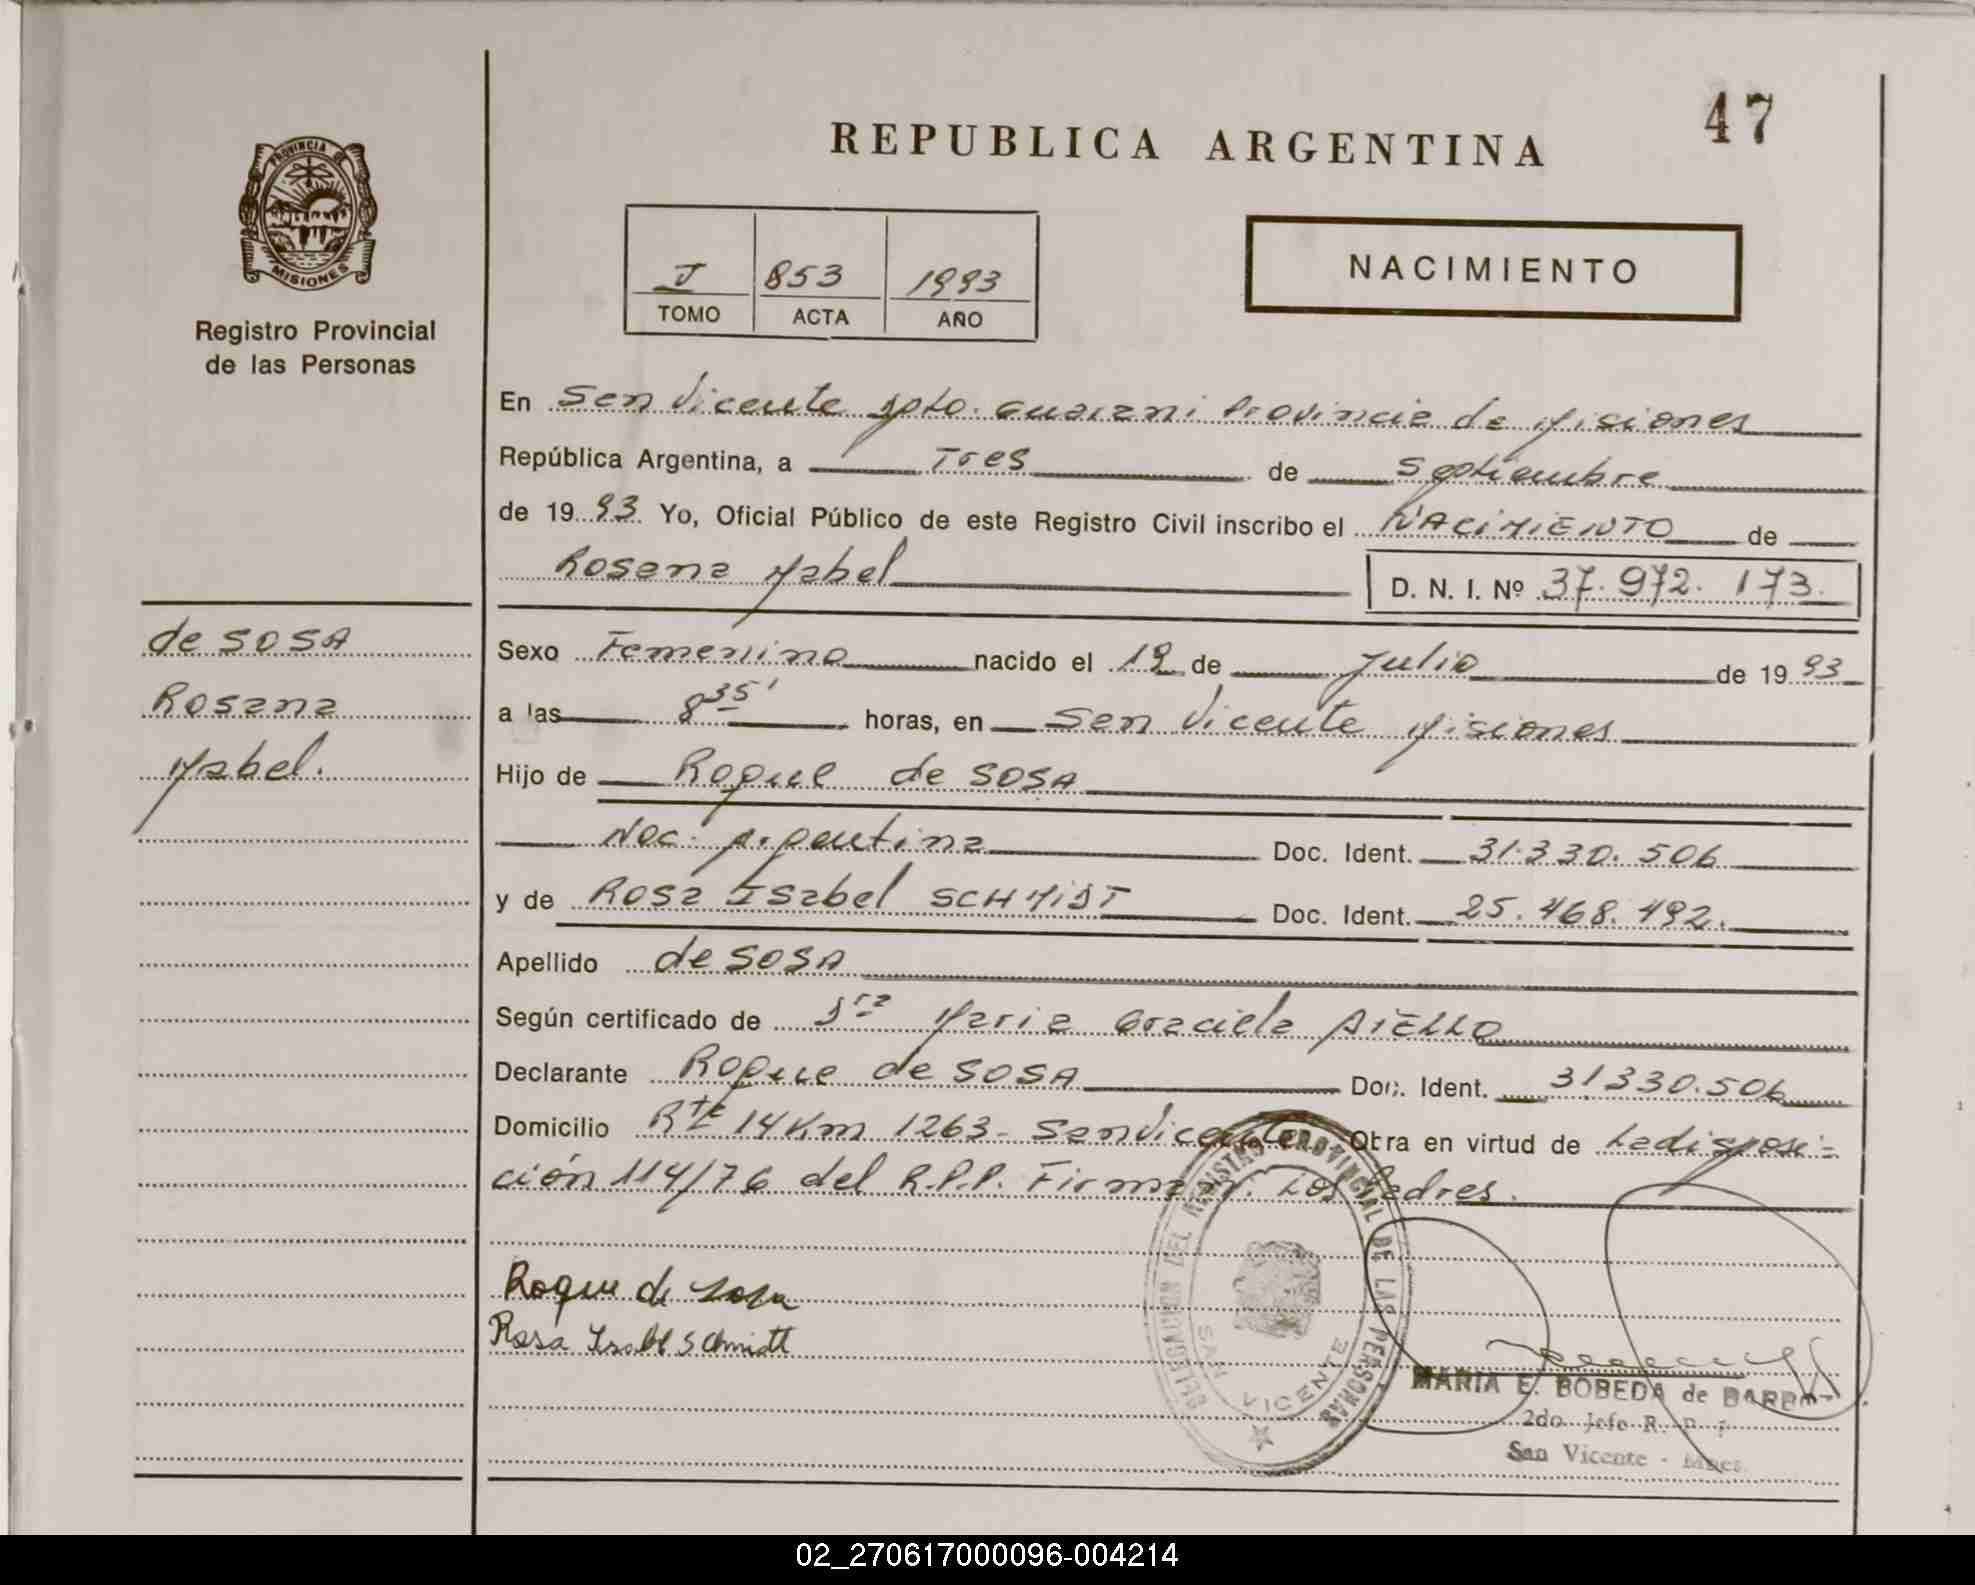 47
REPUBLICA ARGENTINA
PROVINCIA DE
MISIONES
Registro Provincial
de las Personas
J 853 1993
TOMO ACTA AÑO
NACIMIENTO
En San Vicente Dpto. Guarani Provincia de Misiones
República Argentina, a Tres de Septiembre
de 1993 Yo, Oficial Público de este Registro Civil inscribo el NACIMIENTO de
Rosana Ysabel D. N. I. Nº 37.972.173.
de SOSA
Rosana
Ysabel.
Sexo Femenino nacido el 19 de Julio de 1993
a las 8 35' horas, en San Vicente Misiones
Hijo de Roque de SOSA
Nac. Argentina Doc. Ident. 31.330.506
y de Rosa Isabel SCHMIDT Doc. Ident. 25.468.492.
Apellido de SOSA
Según certificado de Dra Maria Graciela AIELLO
Declarante Roque de SOSA Doc. Ident. 31330.506
Domicilio Rte 14 Km 1263- San Vicente Obra en virtud de La disposi=
ción 114/76 del R.P.P. Firman. Los Padres.
Roque de Sosa
Rosa Isabel Schmidt
DELEGACION DEL REGISTRO PROVINCIAL DE LAS PERSONAS
SAN VICENTE
MARIA E. BOBEDA de
2do. Jefe R. P.
San Vicente - Mnes.
02_270617000096-004214